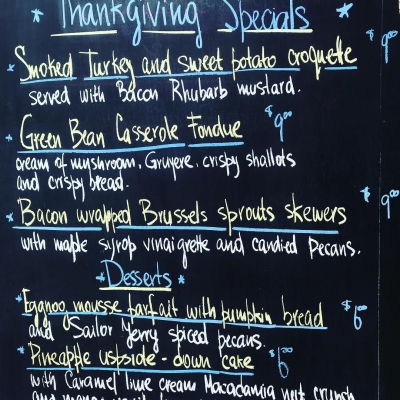 * Thanksgiving Specials *
* Smoked Turkey and sweet potato croquette $9.00
served with Bacon Rhubarb mustard.
* Green Bean Casserole Fondue $9.00
cream of mushroom, Gruyere, crispy shallots
and crispy bread.
* Bacon wrapped Brussels sprouts skewers $9.00
with maple syrop vinaigrette and candied pecans.
* Desserts *
* Eggnog mousse parfait with pumpkin bread $6.00
and Sailor Jerry spiced pecans.
* Pineapple upside-down cake $6.00
with Caramel lime cream Macadamia nut crunch
and mango